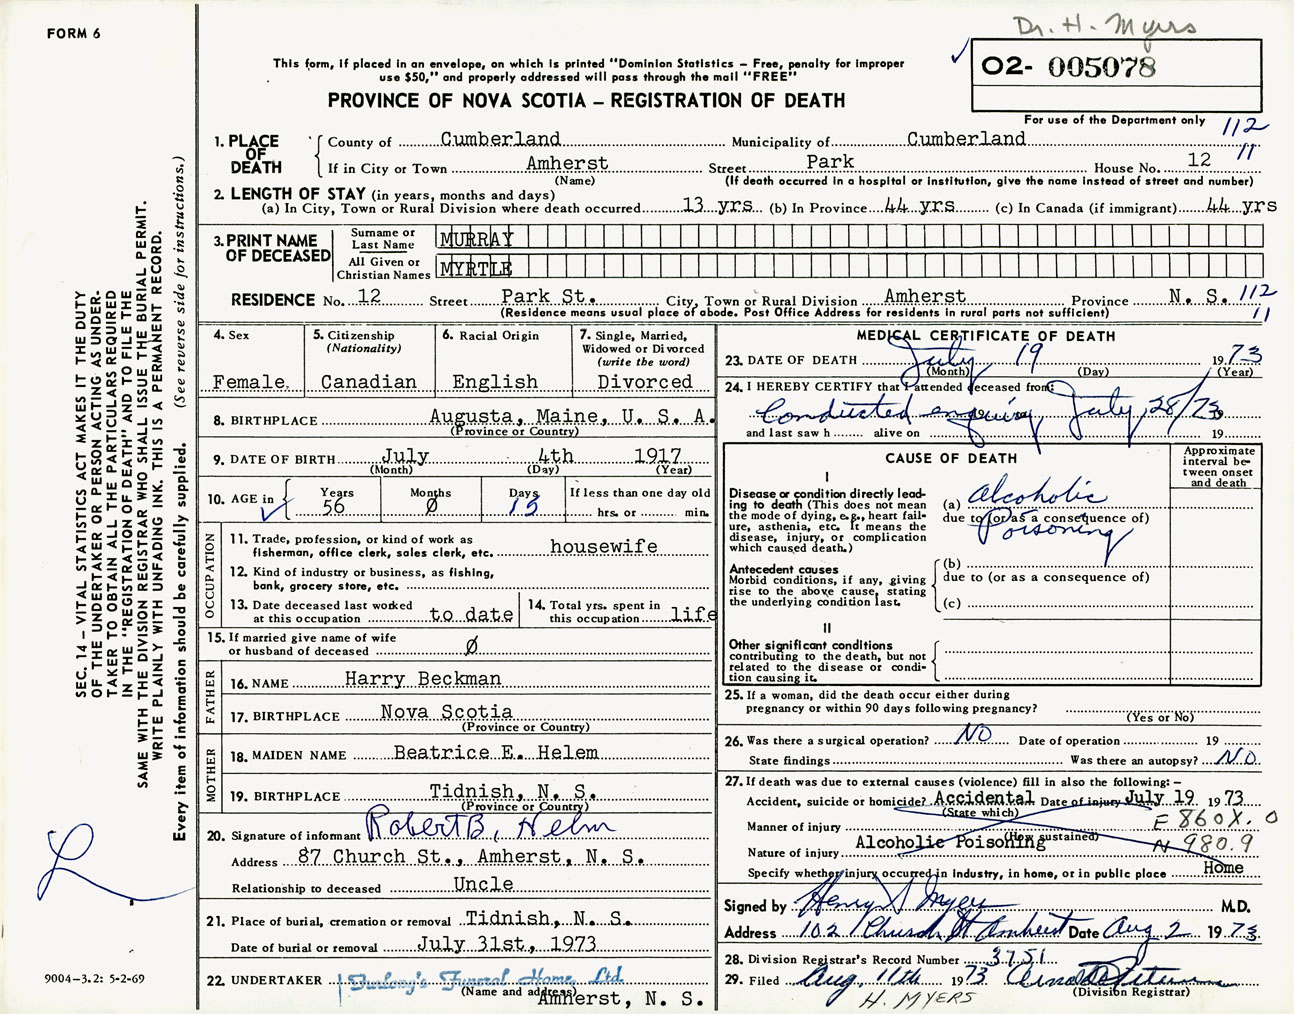 FORM 6
Dr. H. Myers
This form, if placed in an envelope, on which is printed "Dominion Statistics – Free, penalty for improper
use $50," and properly addressed will pass through the mail "FREE"
PROVINCE OF NOVA SCOTIA – REGISTRATION OF DEATH
02- 005078
For use of the Department only
112
11
1. PLACE OF DEATH
County of Cumberland Municipality of Cumberland
If in City or Town Amherst Street Park House No. 12
(Name) (If death occurred in a hospital or institution, give the name instead of street and number)
2. LENGTH OF STAY (in years, months and days)
(a) In City, Town or Rural Division where death occurred 13 yrs (b) In Province 44 yrs (c) In Canada (if immigrant) 44 yrs
3. PRINT NAME OF DECEASED
Surname or Last Name MURRAY
All Given or Christian Names MYRTLE
RESIDENCE No. 12 Street Park St. City, Town or Rural Division Amherst Province N. S. 112
(Residence means usual place of abode. Post Office Address for residents in rural parts not sufficient) 11
4. Sex
Female
5. Citizenship
(Nationality)
Canadian
6. Racial Origin
English
7. Single, Married,
Widowed or Divorced
(write the word)
Divorced
8. BIRTHPLACE Augusta, Maine, U. S. A.
(Province or Country)
9. DATE OF BIRTH July 4th 1917
(Month) (Day) (Year)
10. AGE in Years 56 Months 0 Days 15 If less than one day old
hrs. or min.
OCCUPATION
11. Trade, profession, or kind of work as
fisherman, office clerk, sales clerk, etc. housewife
12. Kind of industry or business, as fishing,
bank, grocery store, etc.
13. Date deceased last worked
at this occupation to date
14. Total yrs. spent in
this occupation life
15. If married give name of wife
or husband of deceased Ø
FATHER
16. NAME Harry Beckman
17. BIRTHPLACE Nova Scotia
(Province or Country)
MOTHER
18. MAIDEN NAME Beatrice E. Helem
19. BIRTHPLACE Tidnish, N. S.
(Province or Country)
20. Signature of informant Robert B. Helm
Address 87 Church St., Amherst, N. S.
Relationship to deceased Uncle
21. Place of burial, cremation or removal Tidnish, N. S.
Date of burial or removal July 31st, 1973
22. UNDERTAKER Furlong's Funeral Home Ltd
(Name and address)
Amherst, N. S.
MEDICAL CERTIFICATE OF DEATH
23. DATE OF DEATH July 19 1973
(Month) (Day) (Year)
24. I HEREBY CERTIFY that I attended deceased from:
Conducted enquiry July 28/73 19
and last saw h alive on 19
CAUSE OF DEATH
Approximate
interval be-
tween onset
and death
I
Disease or condition directly lead-
ing to death (This does not
mean the mode of dying, e.g., heart fail-
ure, asthenia, etc. It means the
disease, injury, or complication
which caused death.)
(a) Alcoholic
due to (or as a consequence of)
Poisoning
Antecedent causes
Morbid conditions, if any, giving
rise to the above cause, stating
the underlying condition last.
(b)
due to (or as a consequence of)
(c)
II
Other significant conditions
contributing to the death, but not
related to the disease or condi-
tion causing it.
25. If a woman, did the death occur either during
pregnancy or within 90 days following pregnancy?
(Yes or No)
26. Was there a surgical operation? NO Date of operation 19
State findings Was there an autopsy? NO
27. If death was due to external causes (violence) fill in also the following: –
Accident, suicide or homicide? Accidental Date of injury July 19 1973
(State which)
Manner of injury E 860X.0
(How sustained)
Nature of injury Alcoholic Poisoning N 980.9
Specify whether injury occurred in Industry, in home, or in public place Home
Signed by Henry S Myers M.D.
Address 102 Church St Amherst Date Aug 2 1973
28. Division Registrar's Record Number 3751
29. Filed Aug. 11th 1973
(Division Registrar)
H. MYERS
SEC. 14 – VITAL STATISTICS ACT MAKES IT THE DUTY
OF THE UNDERTAKER OR PERSON ACTING AS UNDER-
TAKER TO OBTAIN ALL THE PARTICULARS REQUIRED
IN THE "REGISTRATION OF DEATH" AND TO FILE THE
SAME WITH THE DIVISION REGISTRAR WHO SHALL ISSUE THE BURIAL PERMIT.
WRITE PLAINLY WITH UNFADING INK. THIS IS A PERMANENT RECORD.
Every item of information should be carefully supplied. (See reverse side for instructions.)
L
9004–3.2: 5-2-69